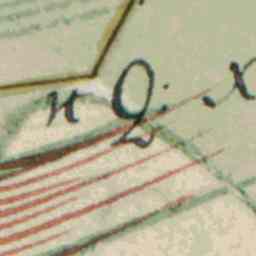 n Q. x